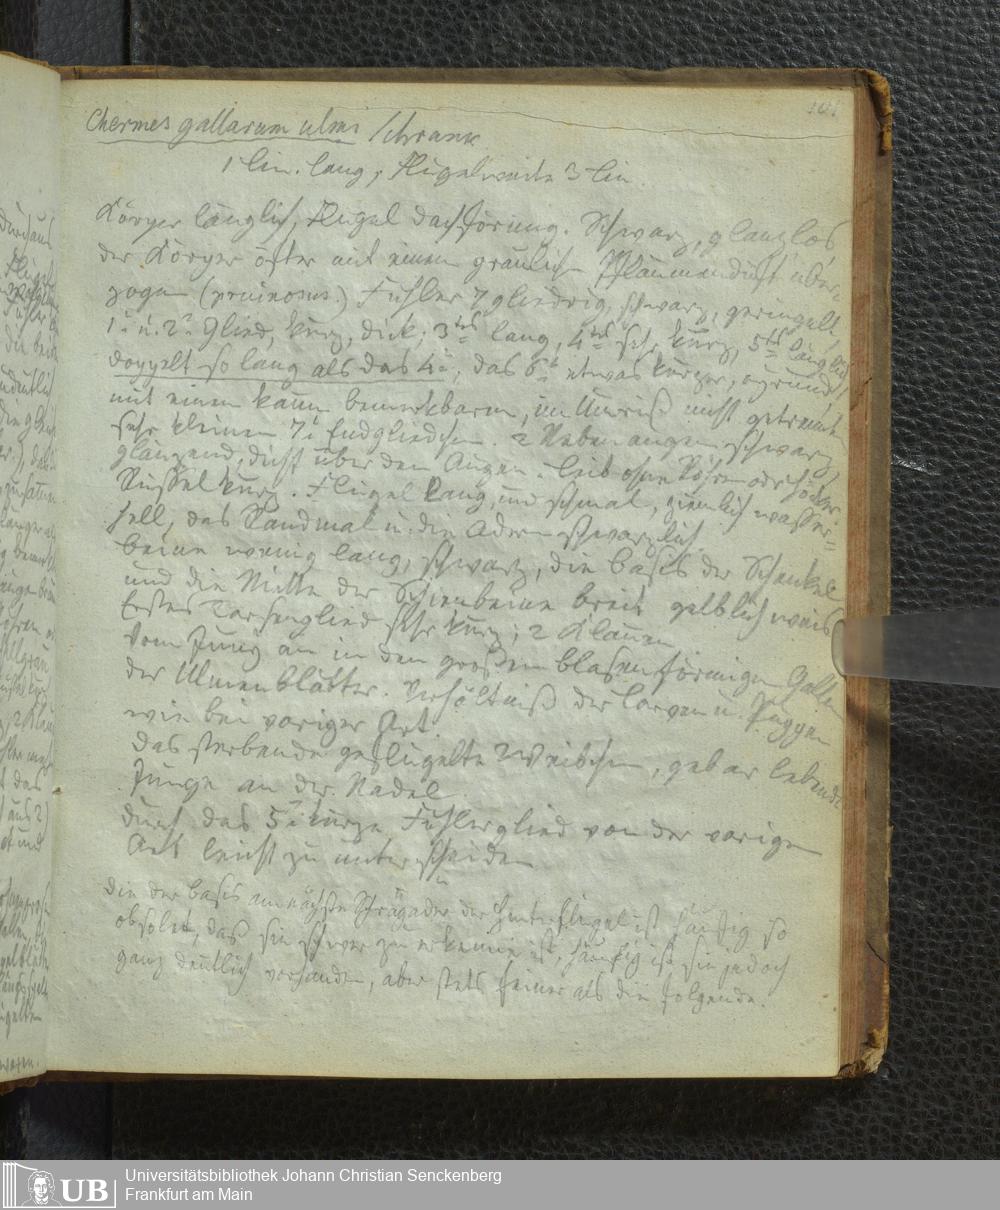 101
Chermes gallarum ulmi Schrank
1 Lin. lang, Flügelweite 3 Lin
Körper länglich, Flügel dachförmig. Schwarz, glanzlos
der Körper öfter mit einem graulichen Pflaumenduft über-
zogen (pruinosus.) Fühler 7 gliedrig, schwarz, geringelt
1s u. 2s Glied, kurz, dick; 3tes lang, 4tes sehr kurz, 5tes länglich
doppelt so lang als das 4e, das 6te etwas kürzer, eyrund
mit einem kaum bemerkbaren, im Umriß nicht getrennten
sehr kleinen 7n Endgliedchen. 2 Nebenaugen schwarz
glänzend, dicht über den Augen. Leib ohne Röhren oder Höcker.
Rüssel kurz. Flügel lang und schmal, ziemlich wasser-
hell, das Randmal u. die Adern schwarzlich
beine wenig lang, schwarz, die basis der Schenkel
und die Mitte der Schienbeine breit gelblich weis
Erstes Tarsenglied sehr kurz; 2 Klauen
Vom Juny an in den großen blasenförmigen Gallen
der Ulmenblätter. Verhältniß der Larven u. Puppen
wie bei voriger Art.
Das sterbende geflügelte Weibchen, gebar lebende
Junge an der Nadel
durch das 5e kurze Fühlerglied von der vorigen
Art leicht zu unterscheiden
die der basis am nächste Schrägader der Hinterflügel ist häufig so
obsolet, das sie schwer zu erkennen ist, häufig ist sie jedoch
ganz deutlich vorhanden, aber stets feiner als die folgende.
durchaus
Flügel
Fühler
waren.
UB
Universitätsbibliothek Johann Christian Senckenberg
Frankfurt am Main